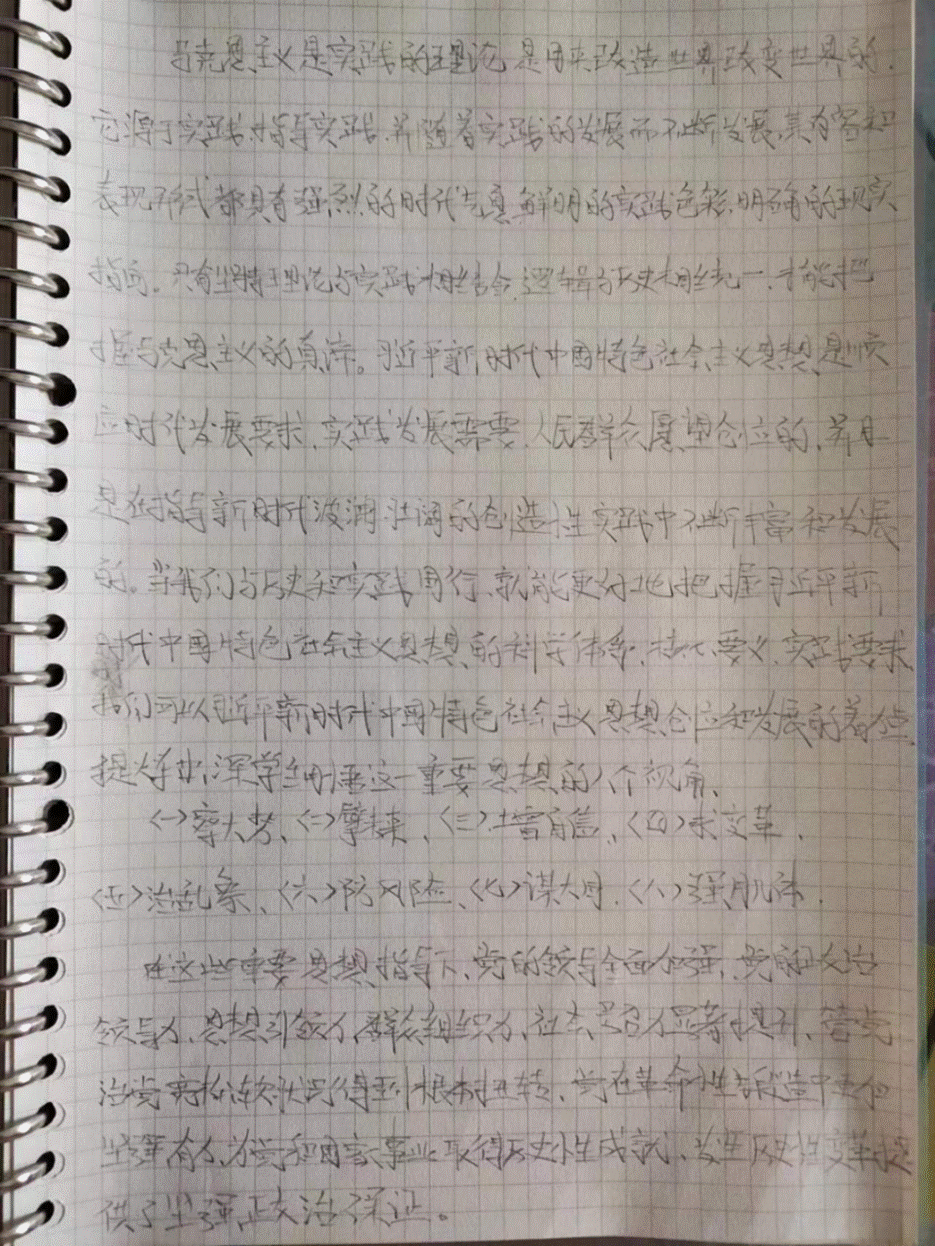 马克思主义是实践的理论,是用来改造世界改变世界的.
它源于实践,指导实践,并随着实践的发展而不断发展,其内容和
表现形式都具有强烈的时代气息,鲜明的实践色彩,明确的现实
指向。只有坚持理论与实践相结合,逻辑与历史相统一,才能把
握马克思主义的真谛。习近平新时代中国特色社会主义思想,是顺
应时代发展要求,实践发展需要,人民群众愿望创立的,并且
是在指导新时代波澜壮阔的创造性实践中不断丰富和发展
的。当我们与历史和实践同行,就能更好地把握习近平新
时代中国特色社会主义思想的科学体系,核心要义,实践要求,
我们可以从习近平新时代中国特色社会主义思想创立和发展的着力点,
提炼出深学细悟这一重要思想的八个视角,
<一>察大势、<二>擎未来、<三>坚自信、<四>求变革、
<五>治乱象、<六>防风险、<七>谋大同、<八>强肌体.
在这些重要思想指导下,党的领导全面加强,党的政治
领导力,思想引领力,群众组织力,社会号召力显著提升,管党
治党宽松软状况得到根本扭转,党在革命性锻造中更加
坚强有力,为党和国家事业取得历史性成就、发生历史性变革提
供了坚强政治保证。